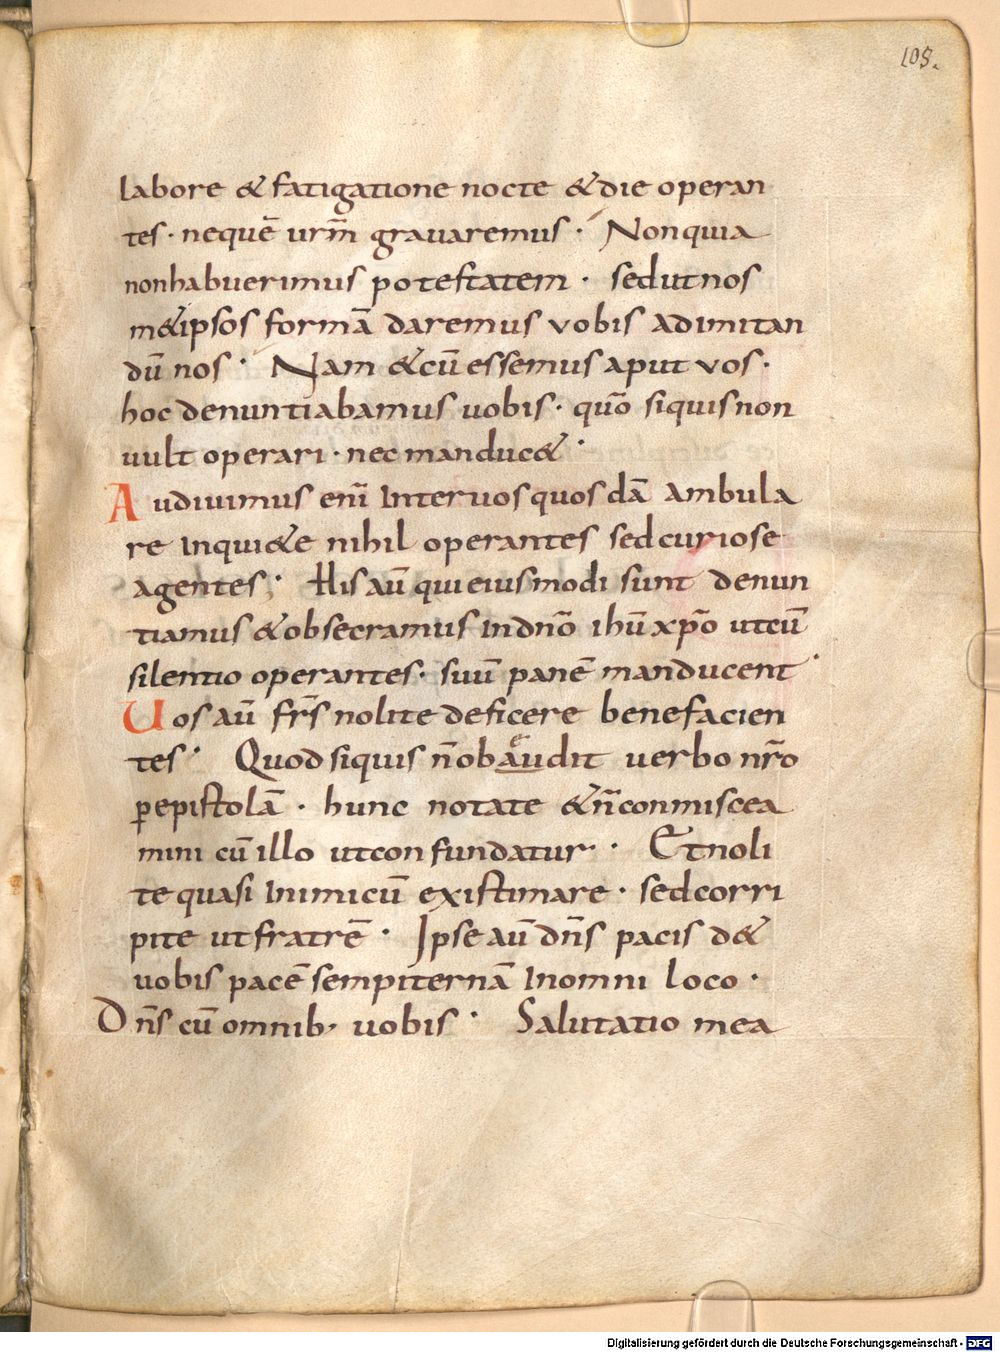 108.
labore & fatigatione nocte & die operan
tes· nequē urm̄ grauaremus· Non quia
non habuerimus potestatem· sed ut nos
m&ipsos formā daremus vobis ad imitan
dū nos· Nam & cū essemus aput vos·
hoc denuntiabamus uobis· quō siquis non
uult operari· nec manduc&·
Audiuimus enī Inter uos quosdā ambula
re Inqui&e nihil operantes sed curiose
agentes;· His aū qui eiusmodi sunt denun
tiamus & obsecramus In dnō ihū xp̄o ut cū
silentio operantes· suū panē manducent·
Uos aū frs̄ nolite deficere benefacien
tes· Quod siquis n̄ obaudit uerbo nr̄o
p̄ epistolā· hunc notate & n̄ conmiscea
mini cū illo ut confundatur· Et noli
te quasi Inimicū existimare· sed corri
pite ut fratrē· Ipse aū dn̄s pacis d&
uobis pacē sempiternā In omni loco·
Dn̄s cū omnib· uobis· Salutatio mea
Digitalisierung gefördert durch die Deutsche Forschungsgemeinschaft - DFG